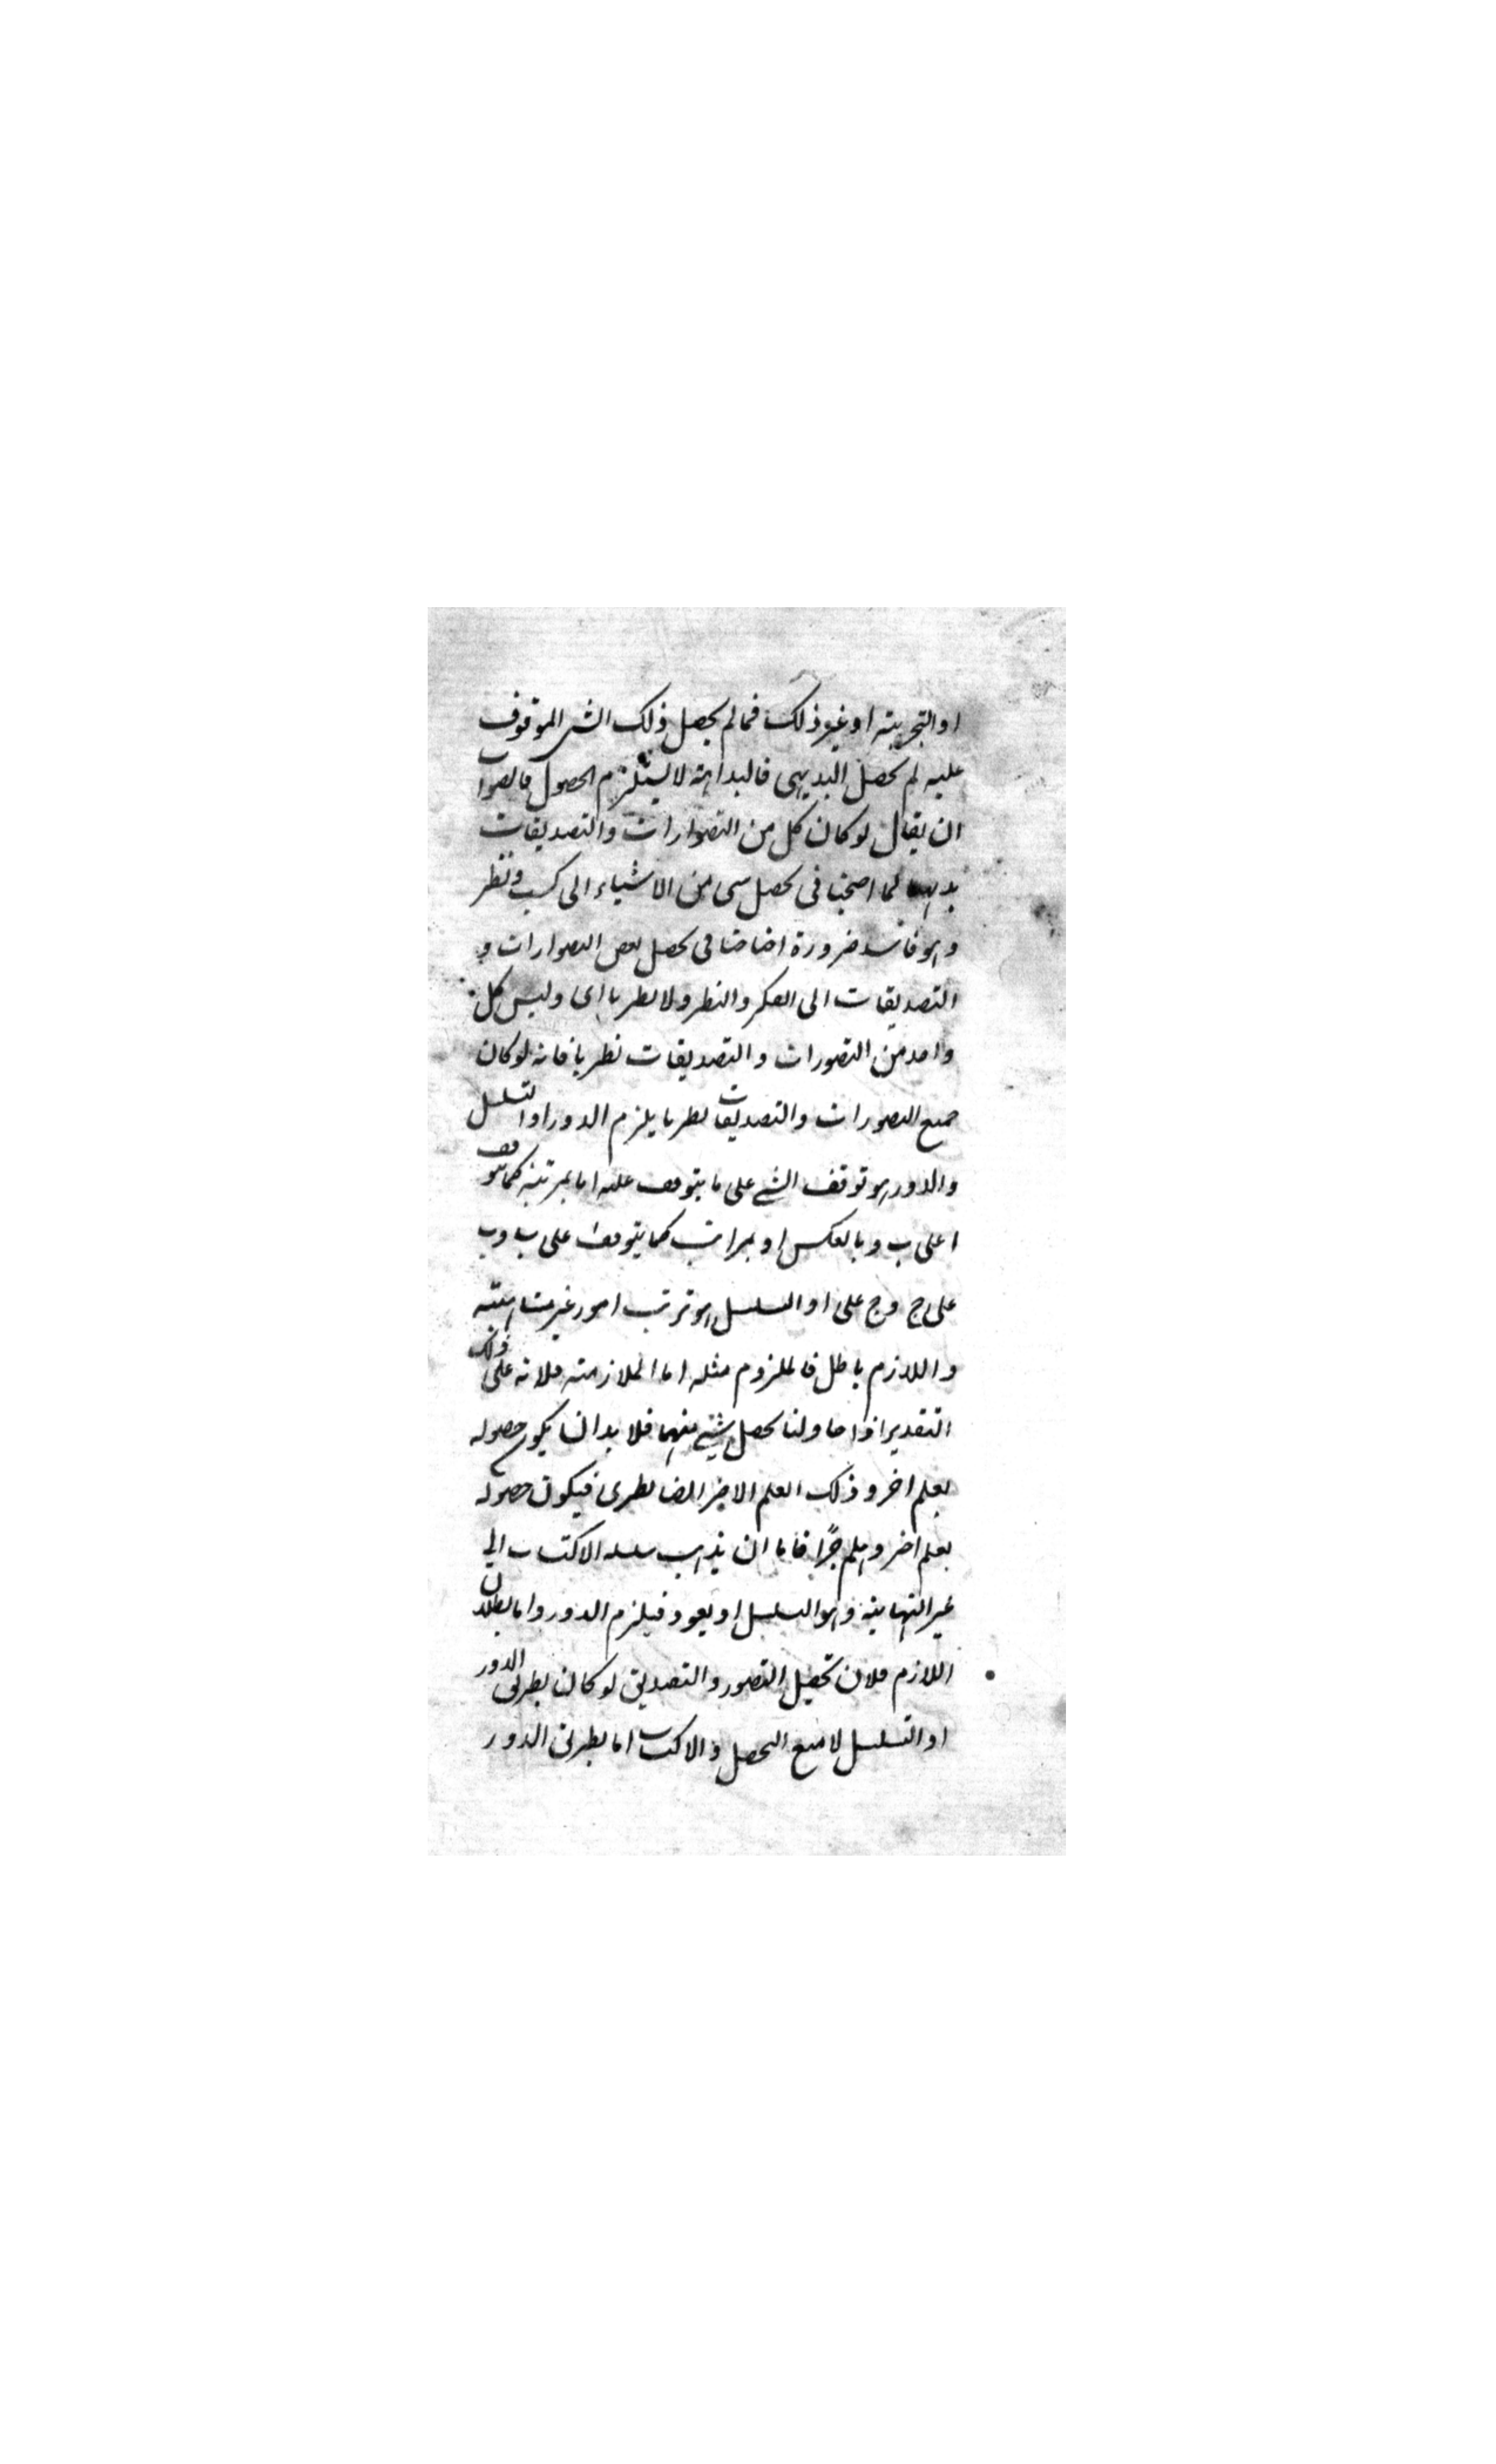 او التجربته او غير ذلك فمالم يحصل ذلك الشى الموقوف
عليه لم يحصل البديهى فالبداهته لا يستلزم الحصول فالصواب
ان يقال لو كان كل من التصوارات والتصديقات
بديهيا لما احتجنا فى تحصل سى من الاشياء الى كسب ونظر
وهو فاسد ضرورة احتاجنا فى تحصل بعض التصوارات و
التصديقات الى الفكر والنظر ولا نظريا اى وليس كل
واحد من التصورات والتصديقات نظريا فانه لو كان
جميع التصورات والتصديقات نظريا يلزم الدور او التسلسل
والدور هو توقف الشے على ما يتوقف عليه اما بمرتبته كما يتوقف
ا على ب وبالعكس او بمراتب كما يتوقف ا على ب وب
على ج وج على ا والتسلسل هو ترتب امور غير متناهيته
واللازم باطل فالملزوم مثله اما الملازمته فلانه على ذلك
التقدير اذا حاولنا تحصل شے منهما فلا بد ان يكون حصوله
بعلم اخر وذلك العلم الاخر ايضا نظرى فيكون حصوله
بعلم اخر وهلم جرًا فاما ان يذهب سلسله الاكتساب الى
غير النهايته وهو التسلسل او يعود فيلزم الدور واما بطلان
اللازم فلان تحصيل التصور والتصديق لو كان بطريق الدور
او التسلسل لامتنع التحصل والاكتساب اما بطريق الدور